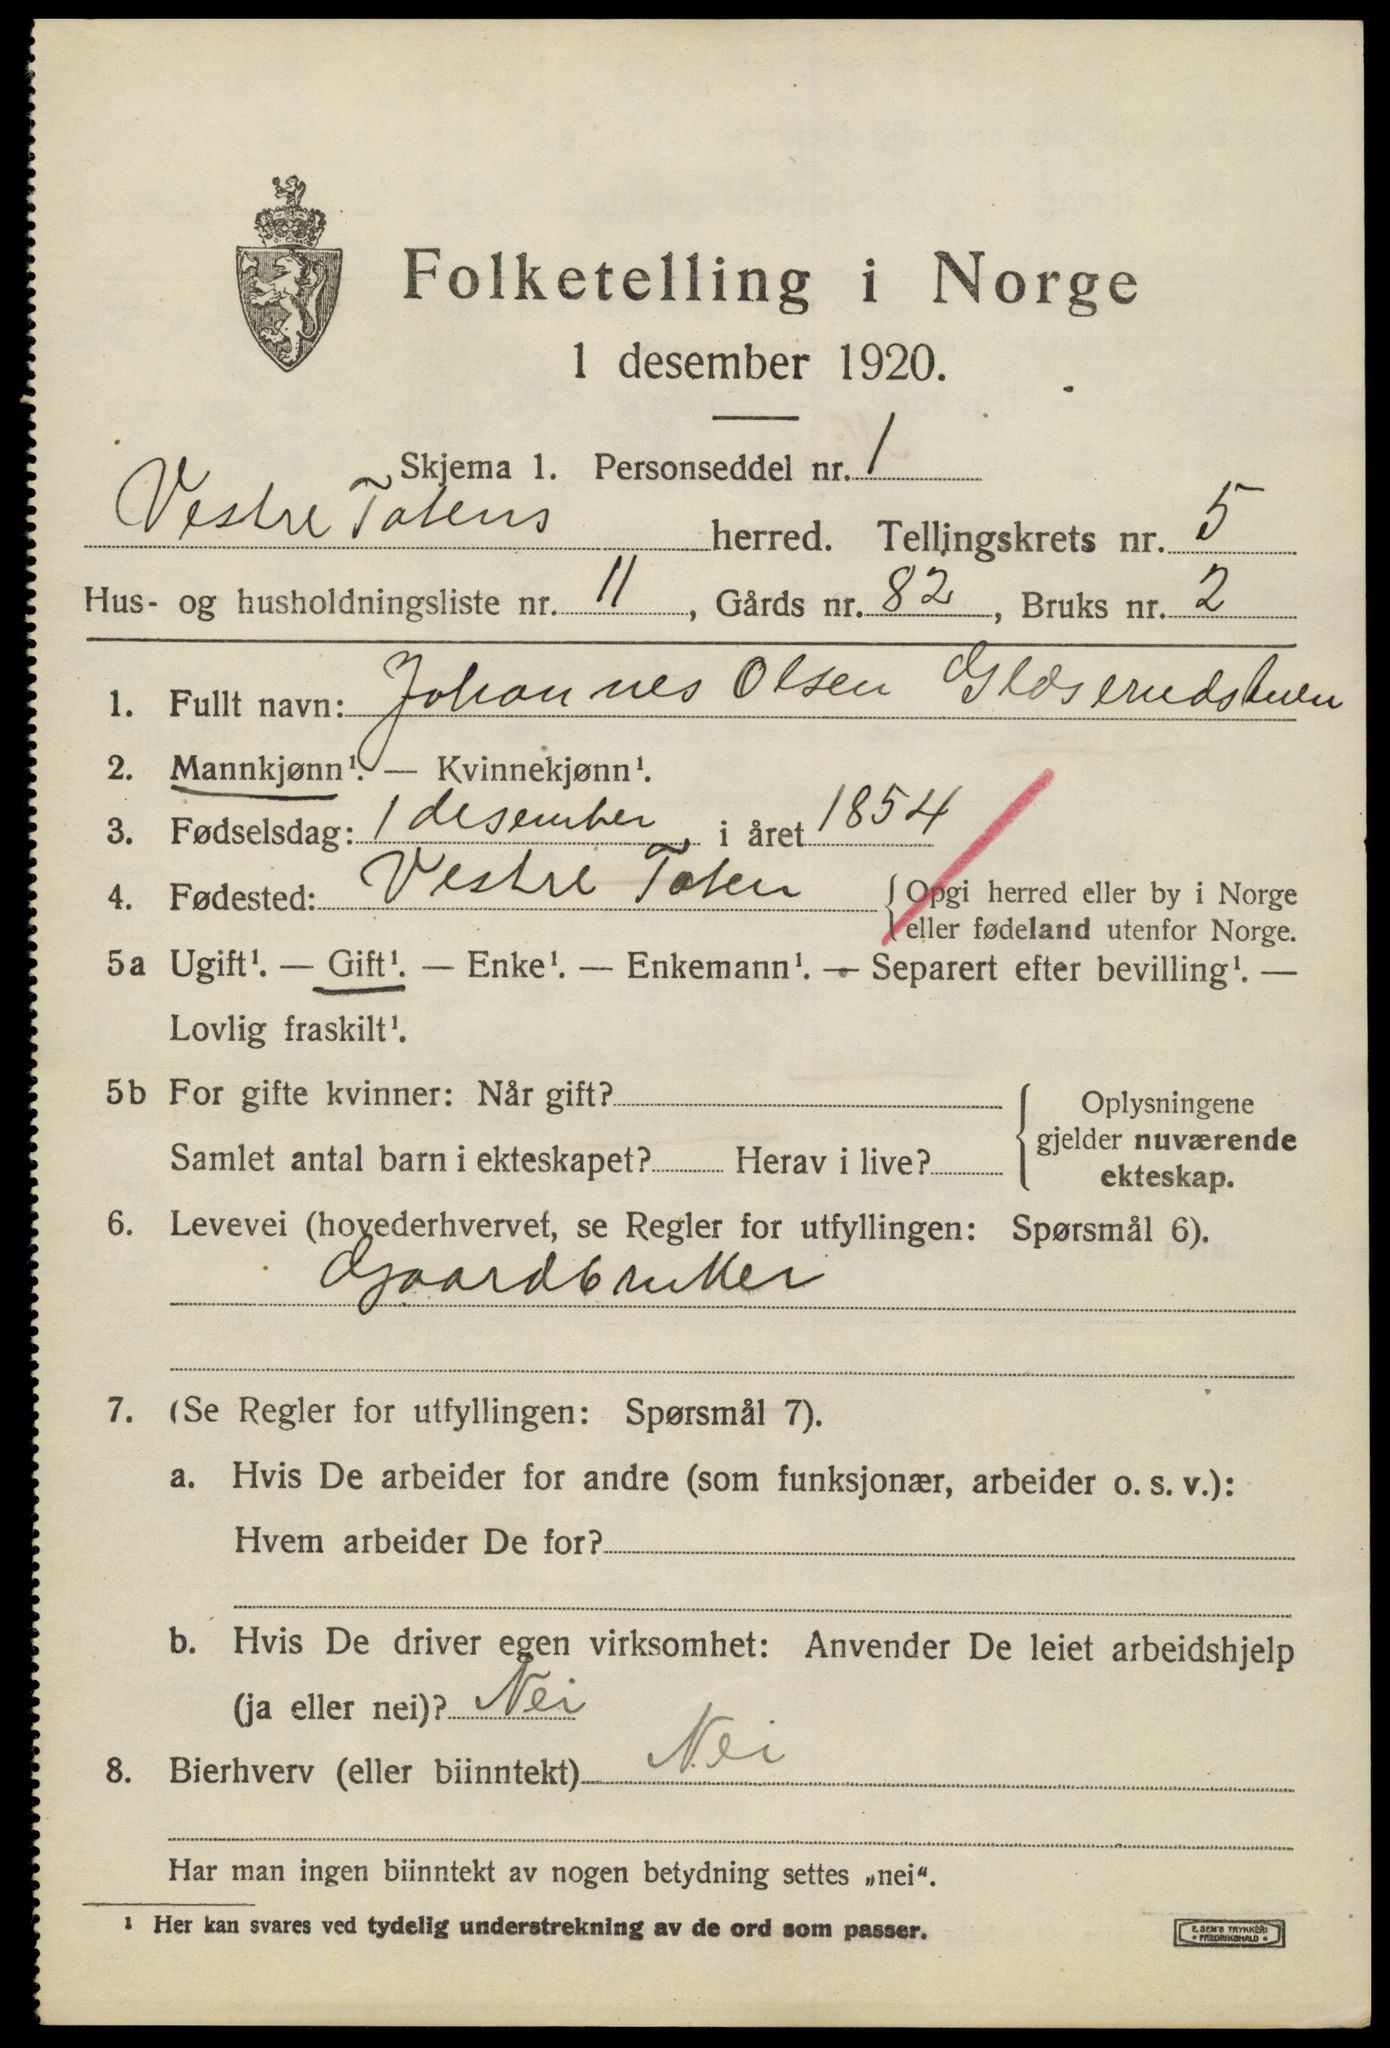 Folketelling i Norge
1 desember 1920.
Skjema 1. Personseddel nr. 1
Vestre Totens herred. Tellingskrets nr. 5
Hus- og husholdningsliste nr. 11, Gårds nr. 82, Bruks nr. 2
1. Fullt navn: Johannes Olsen Glæserudstuen
2. Mannkjønn¹. — Kvinnekjønn¹.
3. Fødselsdag: 1 desember i året 1854
4. Fødested: Vestre Toten {Opgi herred eller by i Norge
eller fødeland utenfor Norge.
5a Ugift¹. — Gift¹. — Enke¹. — Enkemann¹. — Separert efter bevilling¹. —
Lovlig fraskilt¹.
5b For gifte kvinner: Når gift?
Samlet antal barn i ekteskapet? Herav i live?
{Oplysningene
gjelder nuværende
ekteskap.
6. Levevei (hovederhvervet, se Regler for utfyllingen: Spørsmål 6).
Gaardbruker
7. (Se Regler for utfyllingen: Spørsmål 7).
a. Hvis De arbeider for andre (som funksjonær, arbeider o. s. v.):
Hvem arbeider De for?
b. Hvis De driver egen virksomhet: Anvender De leiet arbeidshjelp
(ja eller nei)? Nei
8. Bierhverv (eller biinntekt) Nei
Har man ingen biinntekt av nogen betydning settes „nei“.
¹ Her kan svares ved tydelig understrekning av de ord som passer.
E. SEM'S TRYKKERI
FREDRIKSHALD